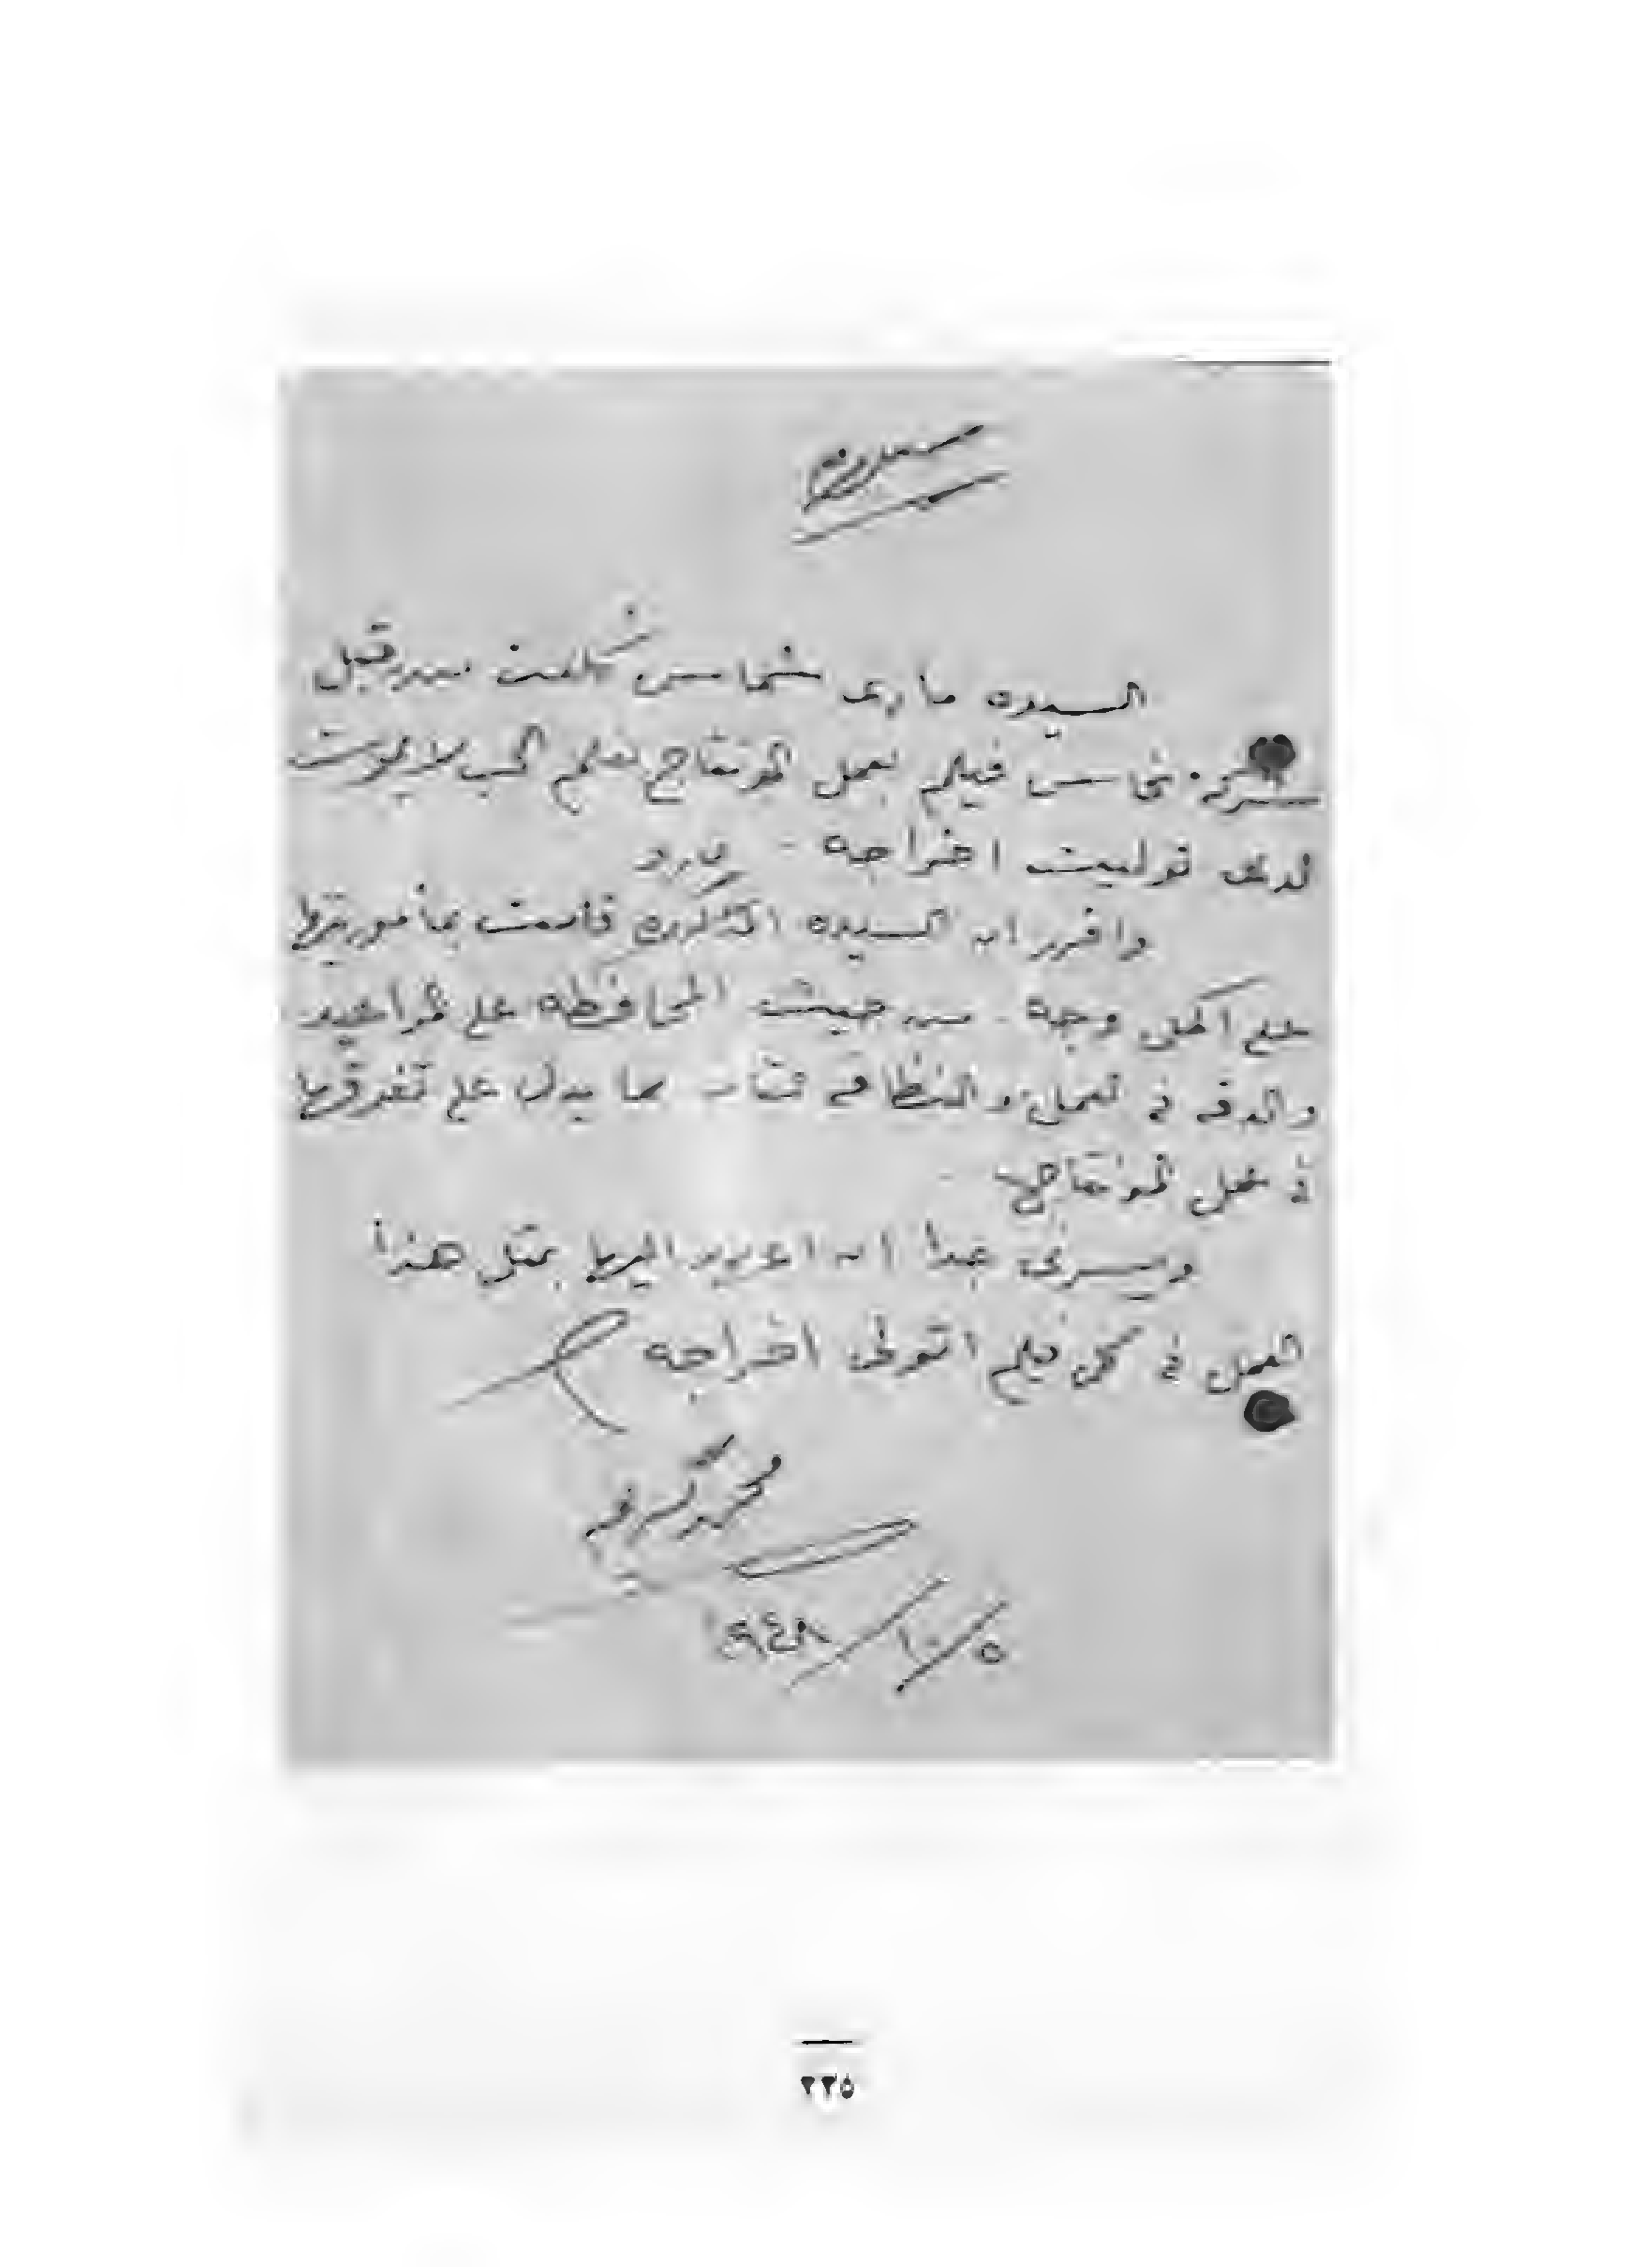 السيده مارى شماس كلفت من قبل
شركة نحاس فيلم بعمل المونتاج لفيلم الحب لا يموت
الذى توليت اخراجه -
واقرر ان السيده المذكوره قامت بمأموريتها
على اكمل وجه - من حيث المحافظه على المواعيد
والدقه فى العمل والنظافه مما يدل على تفوقها
فى عمل المونتاج
ويسرنى جدا ان اعهد اليها بمثل هذا
العمل فى كل فيلم اتولى اخراجه
محمد كريم
٥/١٠/١٩٤٨
٢٣٥